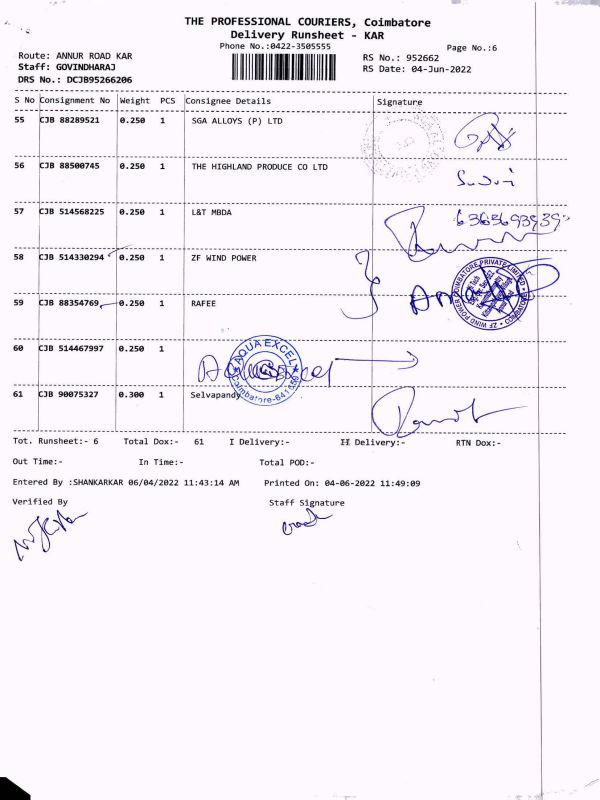 THE PROFESSIONAL COURIERS, Coimbatore
Delivery Runsheet - KAR
Phone No.:0422-3505555
Page No.:6
Route: ANNUR ROAD KAR
RS No.: 952662
Staff: GOVINDHARAJ
RS Date: 04-Jun-2022
DRS No.: DCJB95266206
S No Consignment No Weight PCS Consignee Details Signature
55 CJB 88289521 0.250 1 SGA ALLOYS (P) LTD
56 CJB 88500745 0.250 1 THE HIGHLAND PRODUCE CO LTD
57 CJB 514568225 0.250 1 L&T MBDA
58 CJB 514330294 0.250 1 ZF WIND POWER
ZF WIND POWER COIMBATORE PRIVATE LIMITED
59 CJB 88354769 0.250 1 RAFEE
60 CJB 514467997 0.250 1
AQUA EXCEL
Coimbatore-641
61 CJB 90075327 0.300 1 Selvapandy
Tot. Runsheet:- 6 Total Dox:- 61 I Delivery:- II Delivery:- RTN Dox:-
Out Time:- In Time:- Total POD:-
Entered By :SHANKARKAR 06/04/2022 11:43:14 AM Printed On: 04-06-2022 11:49:09
Verified By Staff Signature